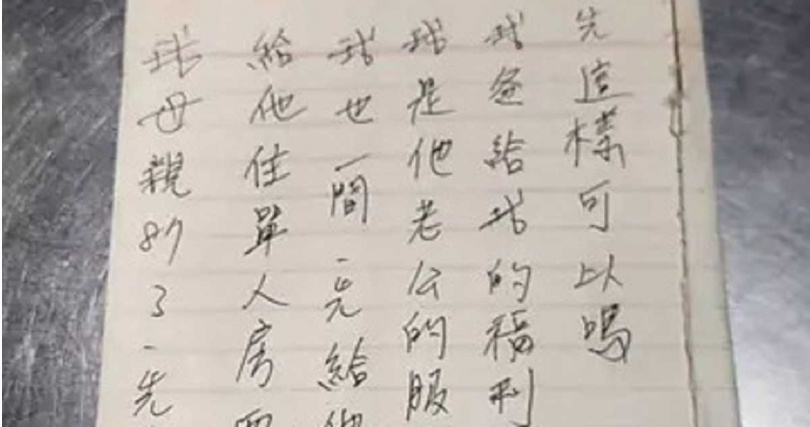 先這樣可以嗎
我爸給我的福利
我是他老公的服
我也一間、先給他
給他住單人房
我母親87了、先